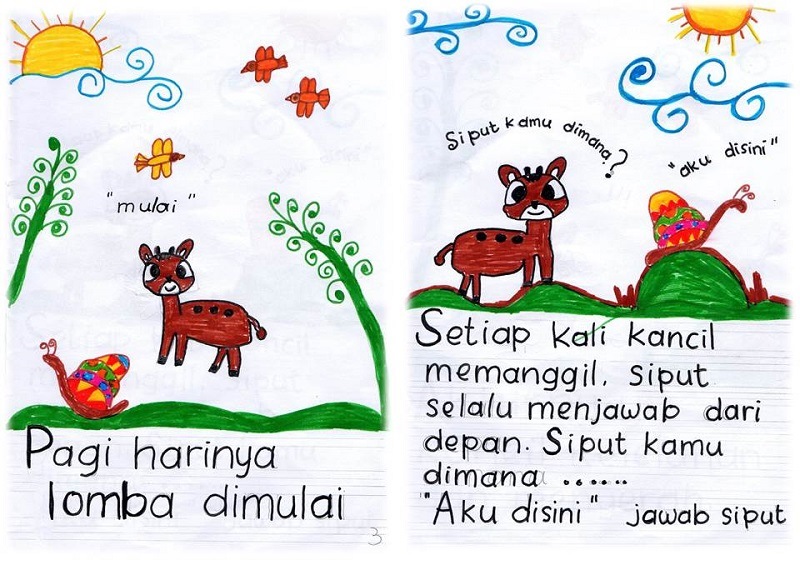 "mulai"
Pagi harinya
lomba dimulai
3
Siput kamu dimana?
"aku disini"
Setiap kali kancil
memanggil, siput
selalu menjawab dari
depan. Siput kamu
dimana ......
"Aku disini" jawab siput